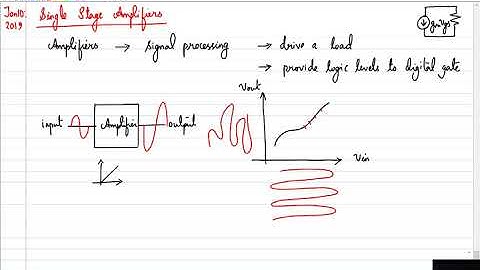 Jan10: Single Stage Amplifiers
2019
gmVgs
Amplifiers → signal processing → drive a load
→ provide logic levels to digital gate
Vout
input Amplifier output
Vin